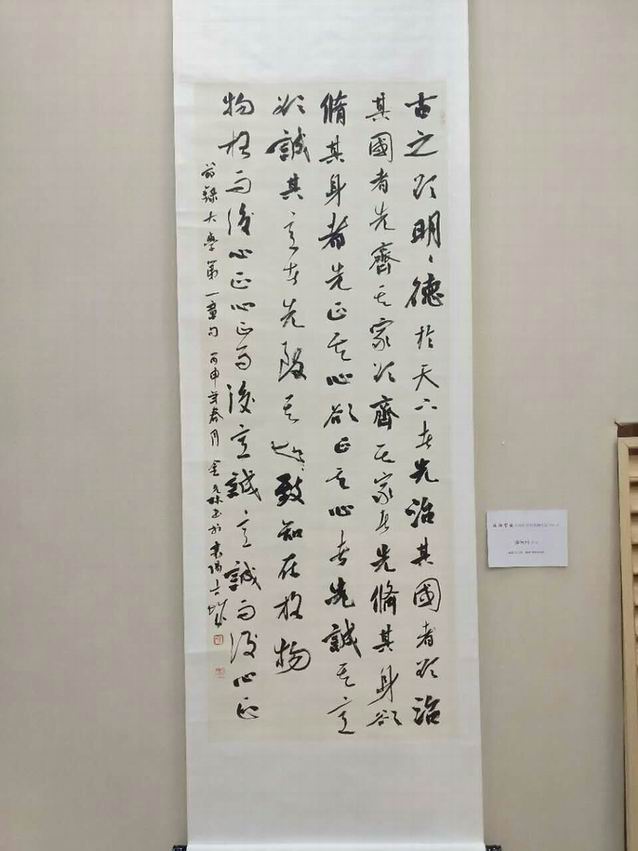 古之欲明、德於天下者先治其國者欲治
其國者先齊其家欲齊其家者先脩其身欲
脩其身者先正其心欲正其心者先誠其意
欲誠其意者先致其知、致知在格物
物格而後心正心正而後意誠意誠而後心正
節錄大學第一章句 丙申年春月